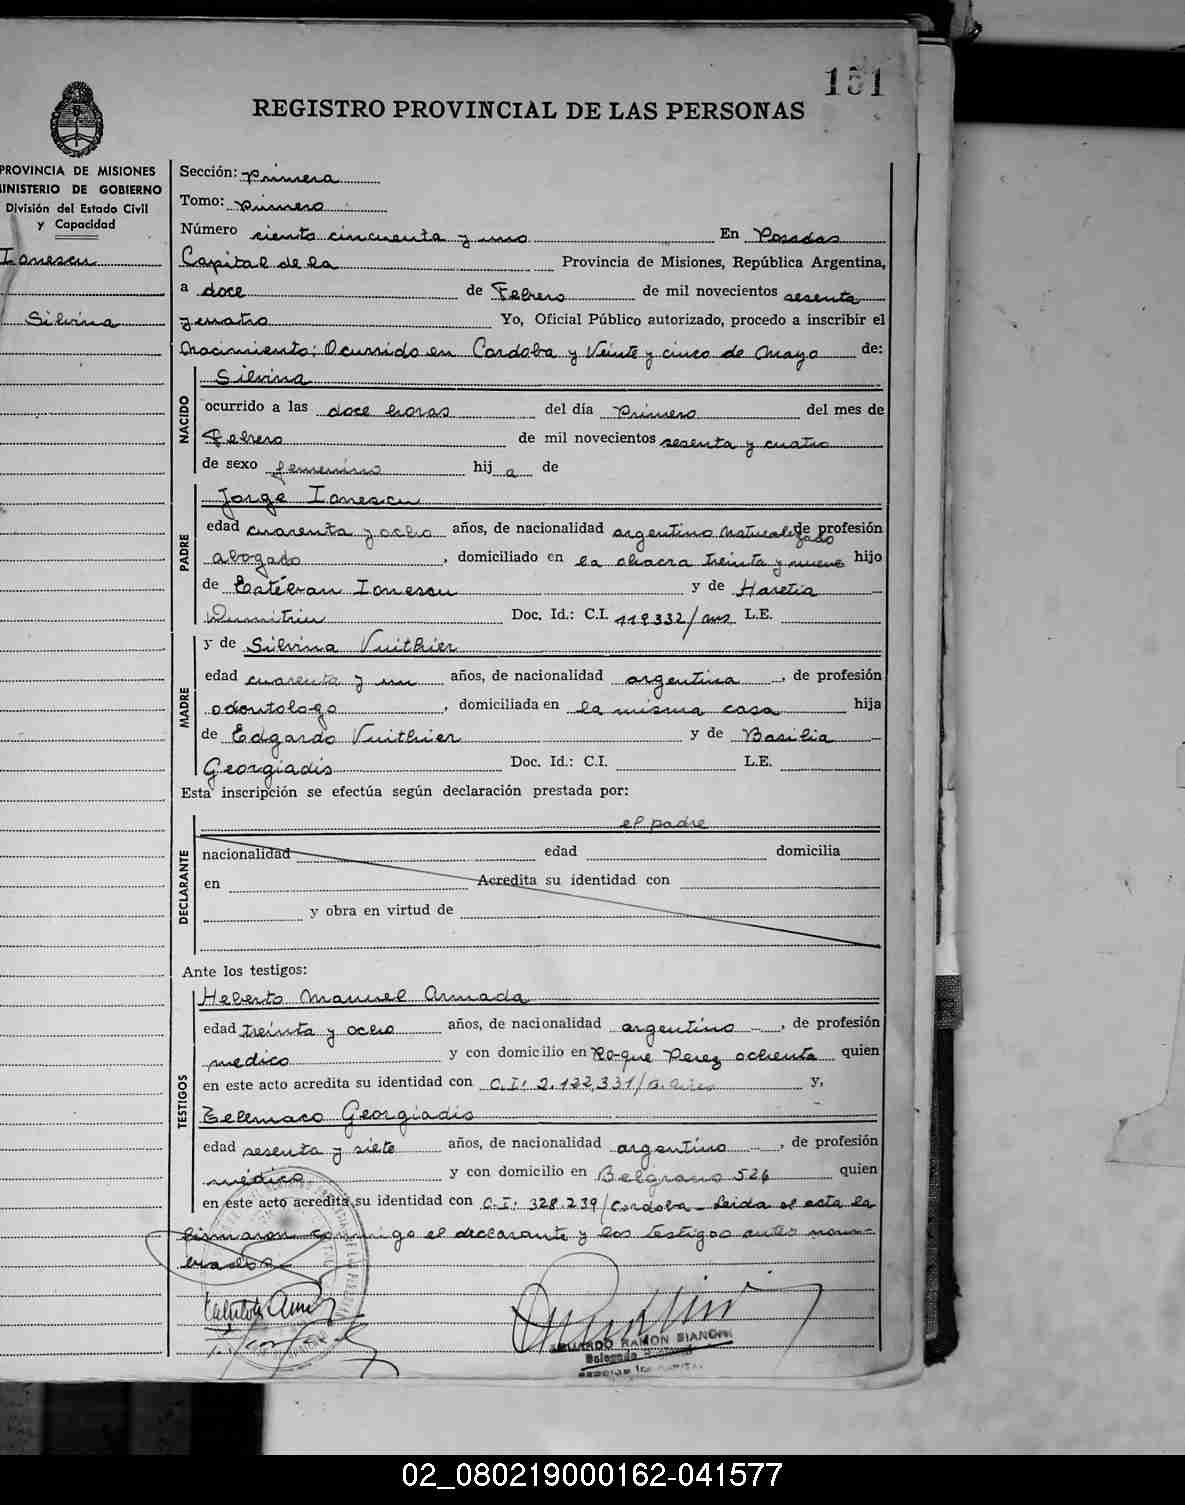 151
REGISTRO PROVINCIAL DE LAS PERSONAS
PROVINCIA DE MISIONES
MINISTERIO DE GOBIERNO
División del Estado Civil
y Capacidad
Ionescu
Silvina
Sección: Primera
Tomo: Primero
Número ciento cincuenta y uno En Posadas
Capital de la Provincia de Misiones, República Argentina,
a doce de Febrero de mil novecientos sesenta
y cuatro Yo, Oficial Público autorizado, procedo a inscribir el
Nacimiento: Ocurrido en Cordoba y Veinte y cinco de Mayo de:
NACIDO
Silvina
ocurrido a las doce horas del día Primero del mes de
Febrero de mil novecientos sesenta y cuatro
de sexo femenino hij a de
PADRE
Jorge Ionescu
edad cuarenta y ocho años, de nacionalidad argentino naturalizado de profesión
abogado, domiciliado en la chacra treinta y nueve hijo
de Estéban Ionescu y de Haretia
Dumitriu Doc. Id.: C.I. 119332/mns L.E.
MADRE
y de Silvina Vuithier
edad cuarenta y un años, de nacionalidad argentina, de profesión
odontologo, domiciliada en la misma casa hija
de Edgardo Vuithier y de Basilia
Georgiadis Doc. Id.: C.I. L.E.
Esta inscripción se efectúa según declaración prestada por:
DECLARANTE
el padre
nacionalidad edad domicilia
en Acredita su identidad con
y obra en virtud de
Ante los testigos:
TESTIGOS
Heberto Manuel Armada
edad treinta y ocho años, de nacionalidad argentino, de profesión
medico y con domicilio en Roque Perez ochenta quien
en este acto acredita su identidad con C.I: 2.122.331/B. Aires y,
Telemaco Georgiadis
edad sesenta y siete años, de nacionalidad argentino, de profesión
médico y con domicilio en Belgrano 526 quien
en este acto acredita su identidad con C.I: 328.239/Cordoba - Leida el acta la
firmaron conmigo el declarante y los testigos antes nom-
brados
RAMON BIANCHI
02_080219000162-041577